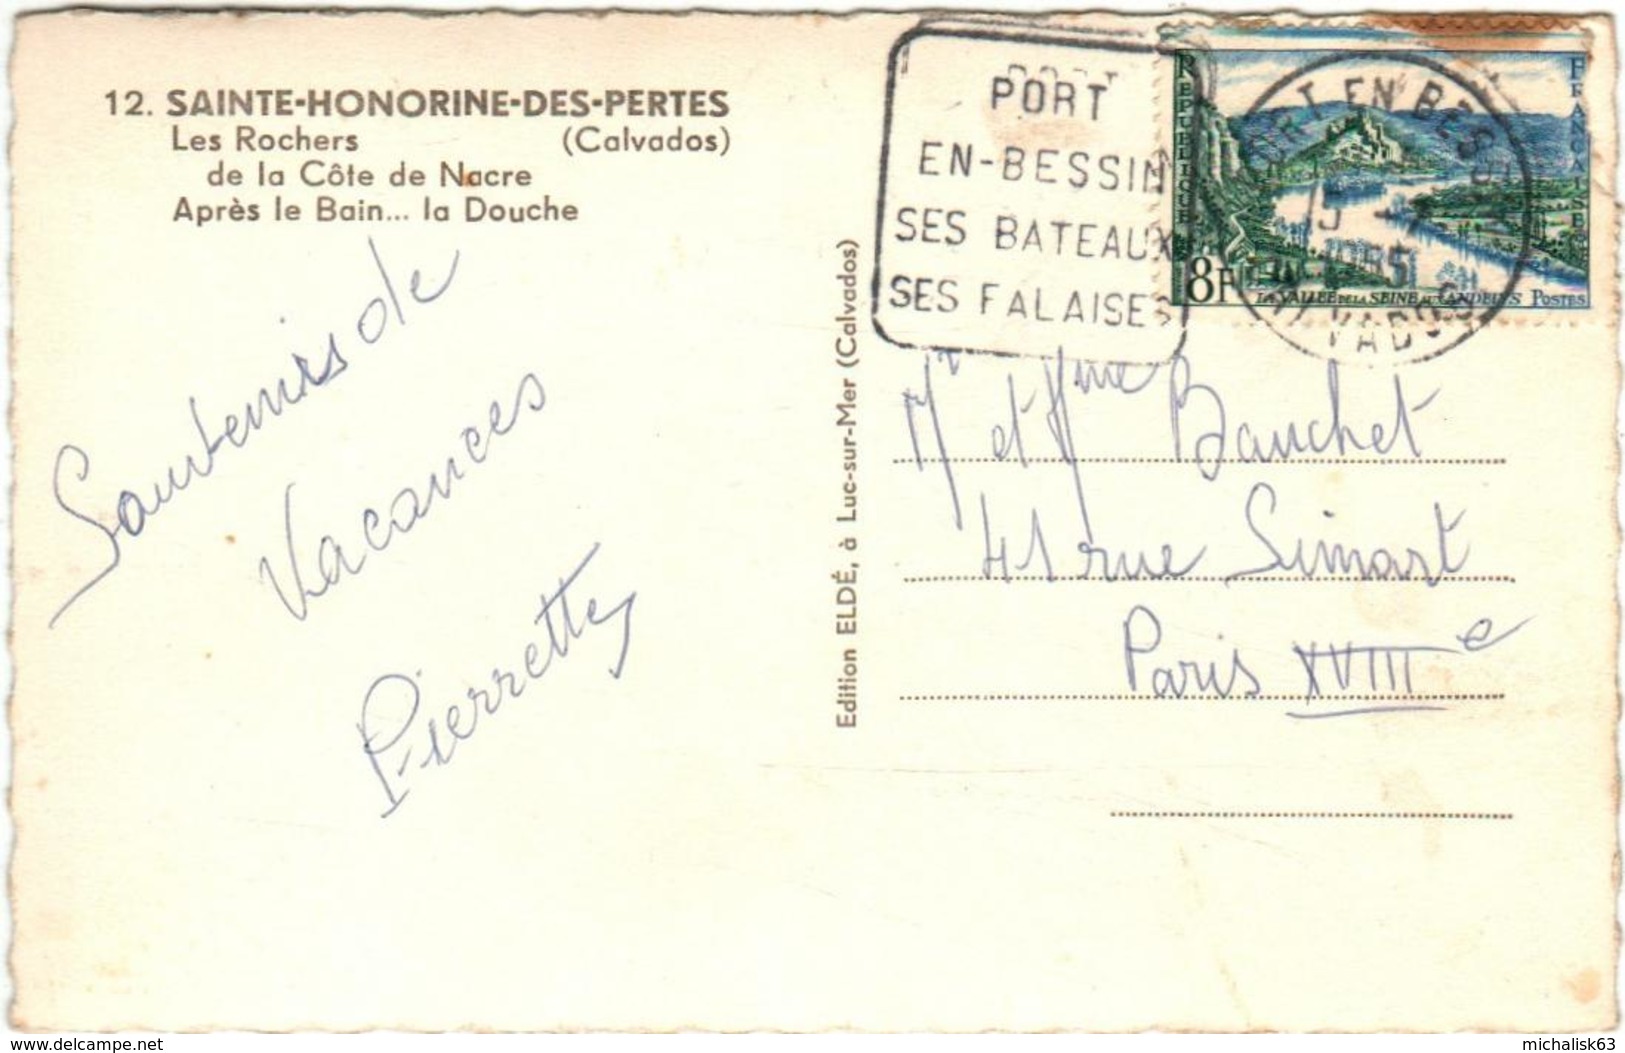 12. SAINTE-HONORINE-DES-PERTES
Les Rochers (Calvados)
de la Côte de Nacre
Après le Bain... la Douche
Souvenirs de
Vacances
Pierrette
Edition ELDÉ, à Luc-sur-Mer (Calvados)
PORT
EN-BESSIN
SES BATEAUX
SES FALAISES
REPUBLIQUE
FRANÇAISE
8F
LA VALLEE DE LA SEINE AUX ANDELYS POSTES
PORT EN BESSIN
15
CALVADOS
Mr et Mme Bauchet
41 rue Simart
Paris XVIIIe
www.delcampe.net
michalisk63